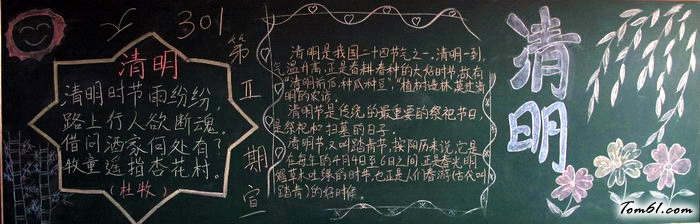 301
清明
清明时节雨纷纷，
路上行人欲断魂。
借问酒家何处有？
牧童遥指杏花村。
(杜牧)
第五期宣
清明是我国二十四节气之一。清明一到，
气温升高，正是春耕春种的大好时节，故有
“清明前后，种瓜种豆”。“植树造林，莫过清
明的农谚。
清明节是传统的最重要的祭祀节日，
是祭祀和扫墓的日子。
清明节，又叫踏青节，按阳历来说，它是
在每年的4月4日至6日之间，正是春光明
媚草木吐绿的时节，也正是人们春游(古代叫
踏青)的好时候。
清明
Tom61.com